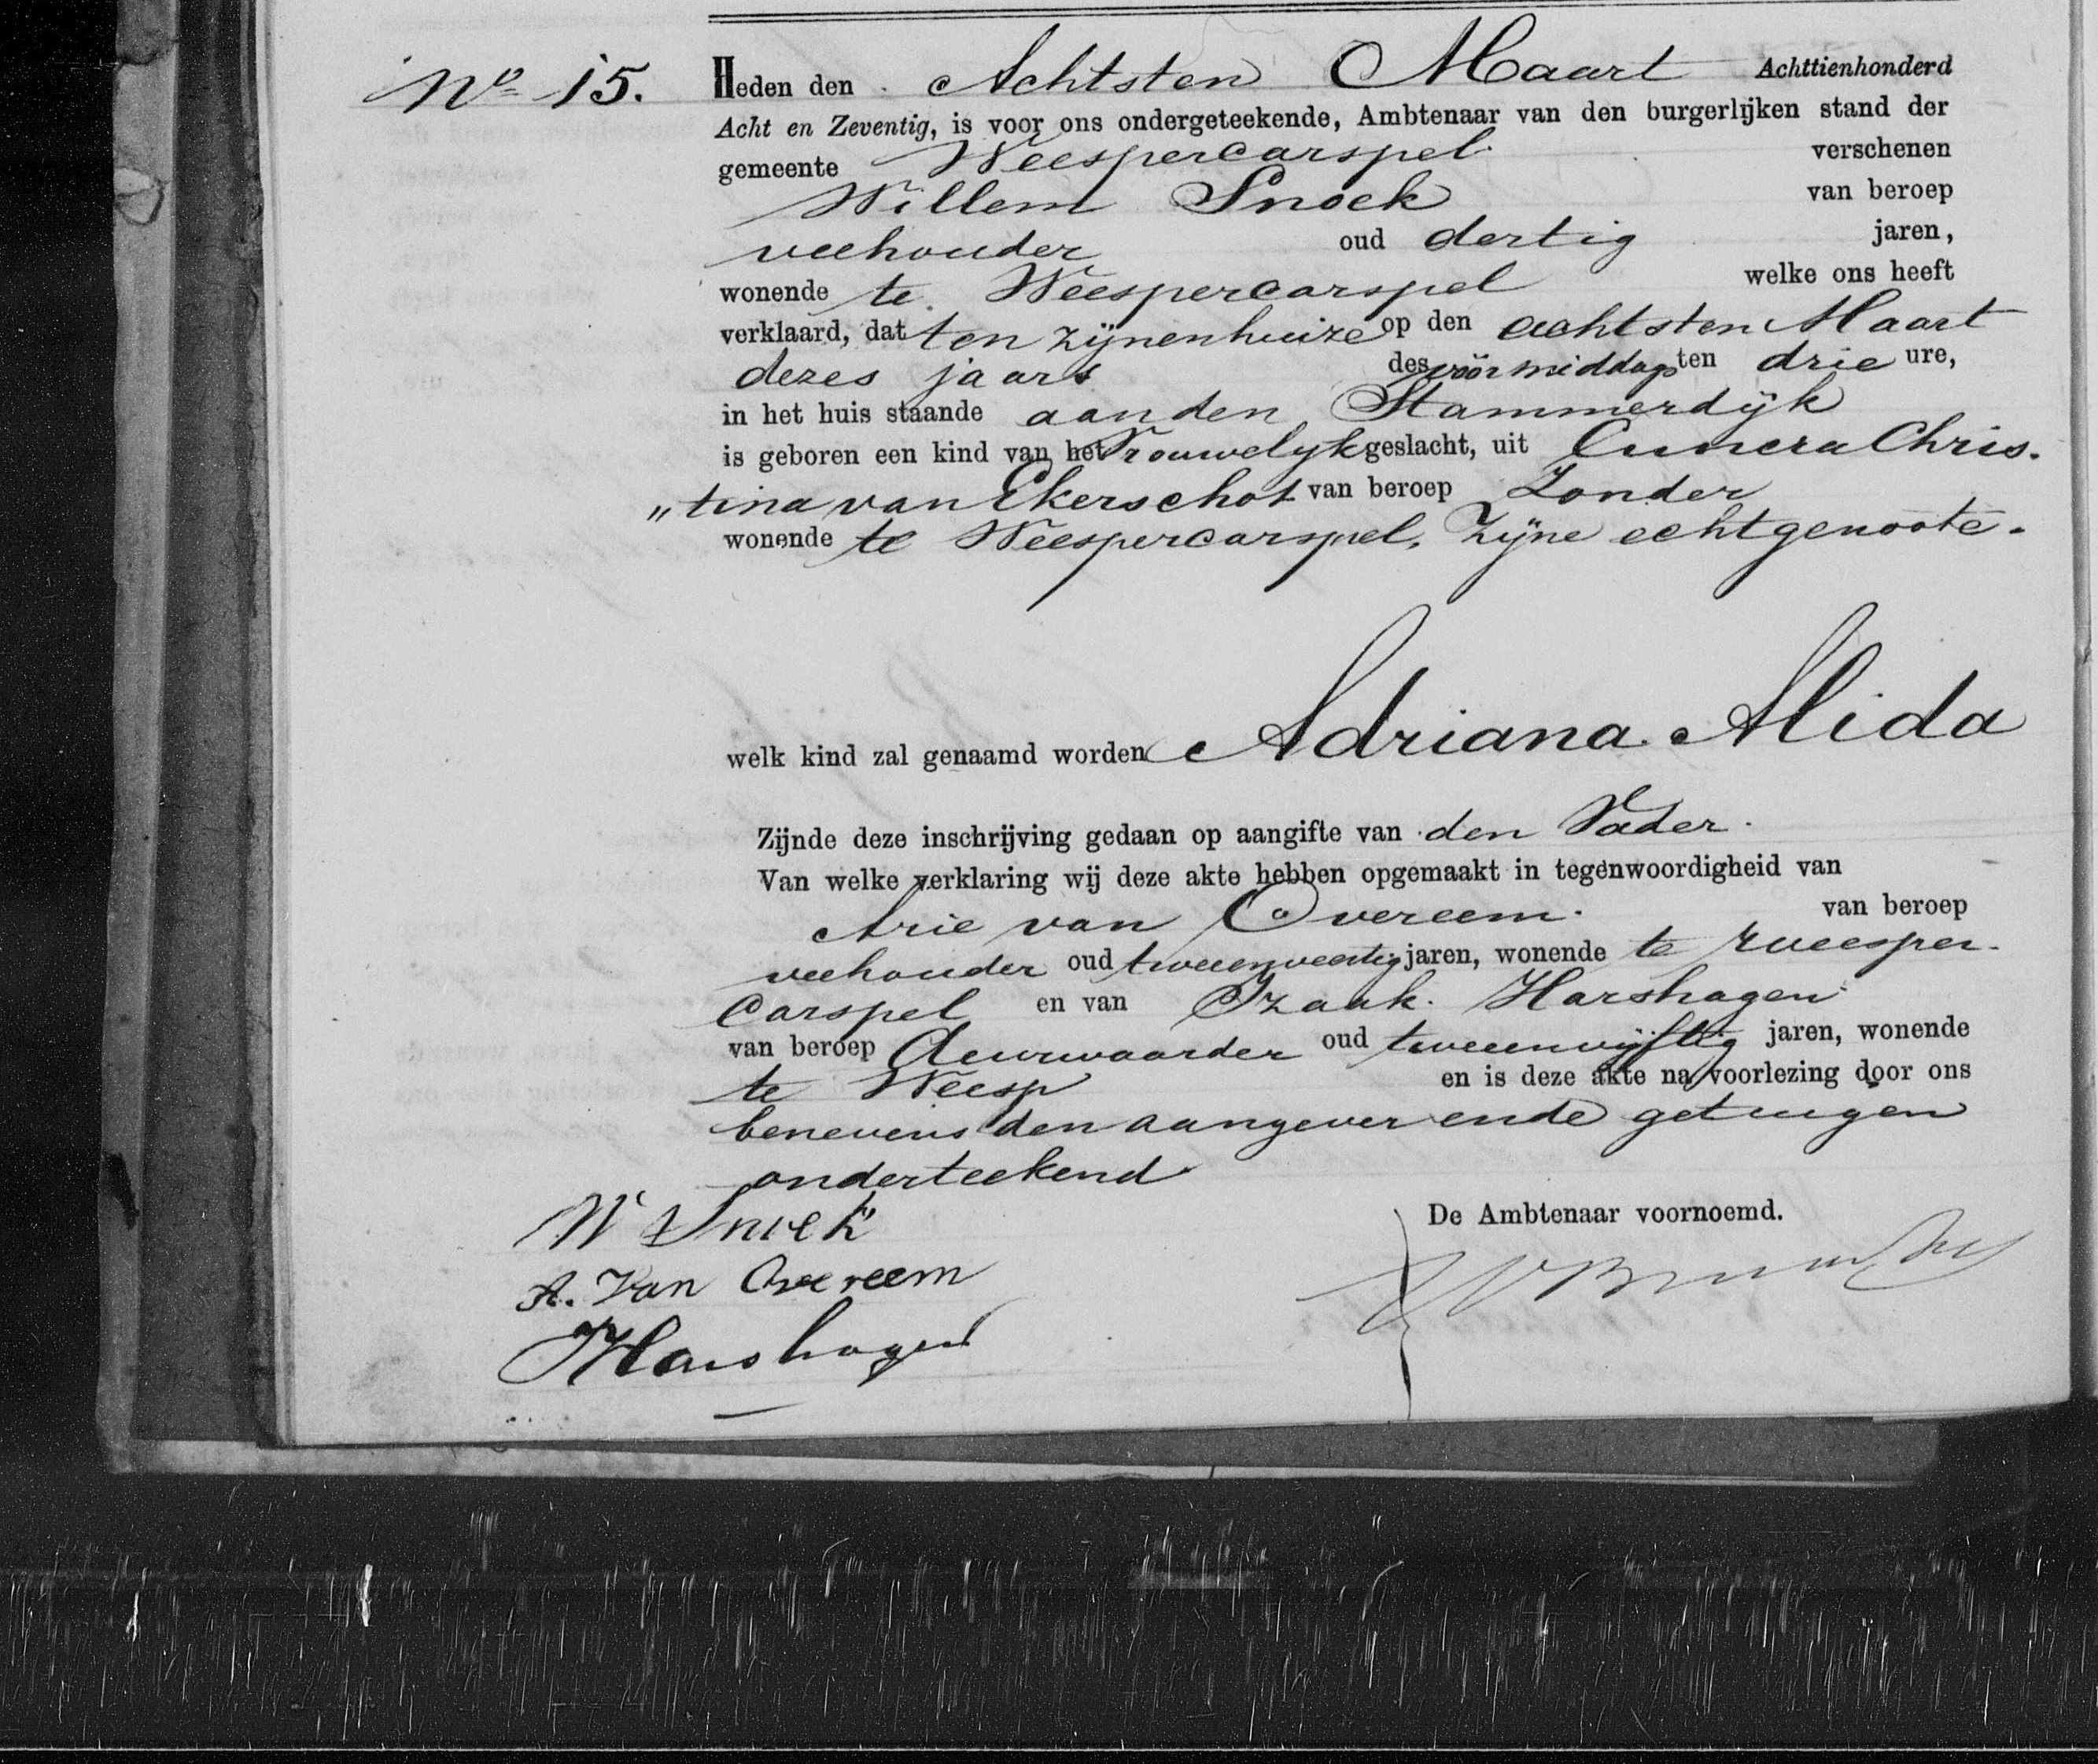 No 15.
Heden den Achtsten Maart Achttienhonderd
Acht en Zeventig, is voor ons ondergeteekende, Ambtenaar van den burgerlijken stand der
gemeente Weespercarspel verschenen
Willem Snoek van beroep
veehouder oud dertig jaren,
wonende te Weespercarspel welke ons heeft
verklaard, dat ten zijnenhuize op den achtsten Maart
dezes jaars des vöörmiddags ten drie ure,
in het huis staande aan den Stammerdijk
is geboren een kind van het Vrouwelijk geslacht, uit Cunera Chris.
„tina van Ekerschot van beroep Zonder
wonende te Weespercarspel, Zijne echtgenoote.
welk kind zal genaamd worden Adriana Alida
Zijnde deze inschrijving gedaan op aangifte van den Vader.
Van welke verklaring wij deze akte hebben opgemaakt in tegenwoordigheid van
Arie van Overeem. van beroep
veehouder oud tweeenveertig jaren, wonende te Weesper-
carspel en van Izaak Harshagen
van beroep deurwaarder oud tweeenvijftig jaren, wonende
te Weesp en is deze akte na voorlezing door ons
benevens den aangever ende getuigen
onderteekend
W Snoek
De Ambtenaar voornoemd.
A. Van Overeem
Harshagen